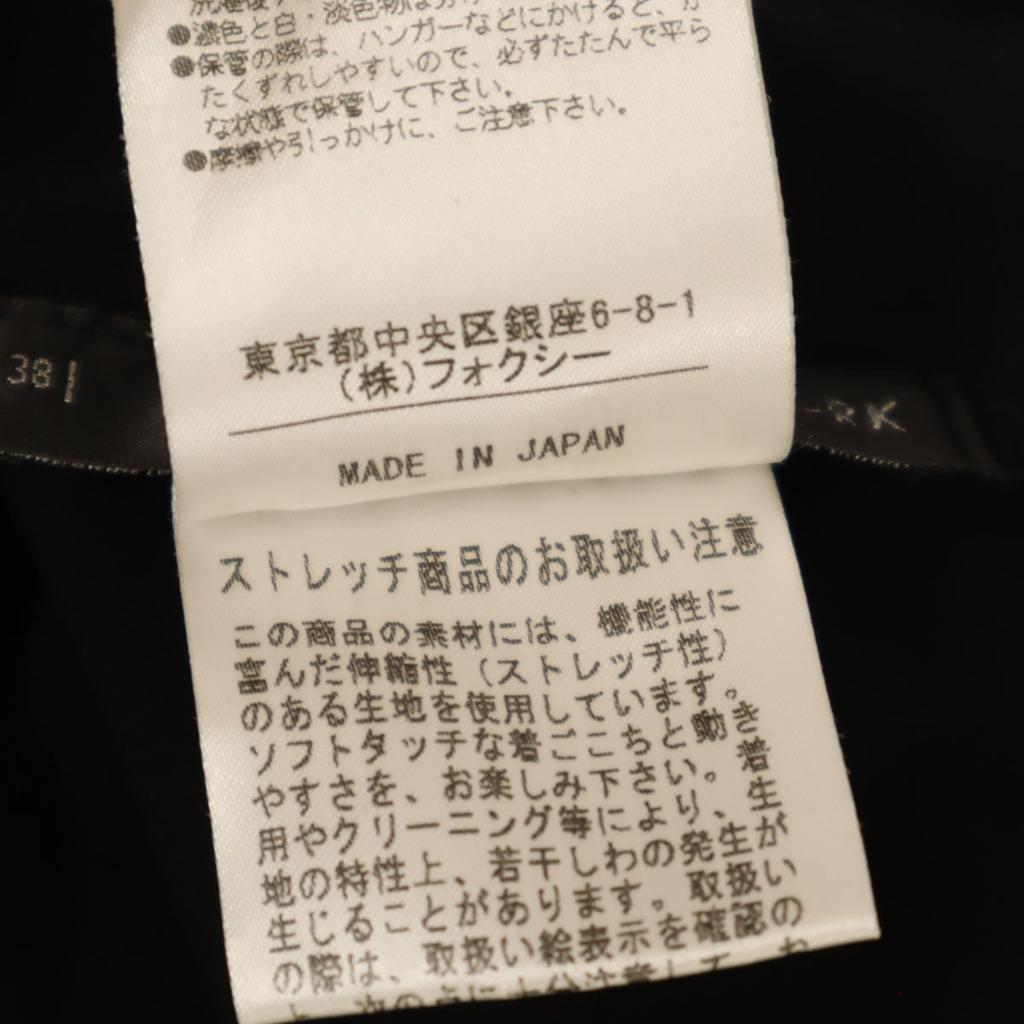 ●濃色と白・淡色物は
●保管の際は、ハンガーなどにかけると、か
たくずれしやすいので、必ずたたんで平ら
な状態で保管して下さい。
●摩擦や引っかけに、ご注意下さい。
東京都中央区銀座6-8-1
(株)フォクシー
MADE IN JAPAN
38
RK
ストレッチ商品のお取扱い注意
この商品の素材には、機能性に
富んだ伸縮性(ストレッチ性)
のある生地を使用しています。
ソフトタッチな着ごこちと動き
やすさを、お楽しみ下さい。着
用やクリーニング等により、生
地の特性上、若干しわの発生が
生じることがあります。取扱い
の際は、取扱い絵表示を確認の